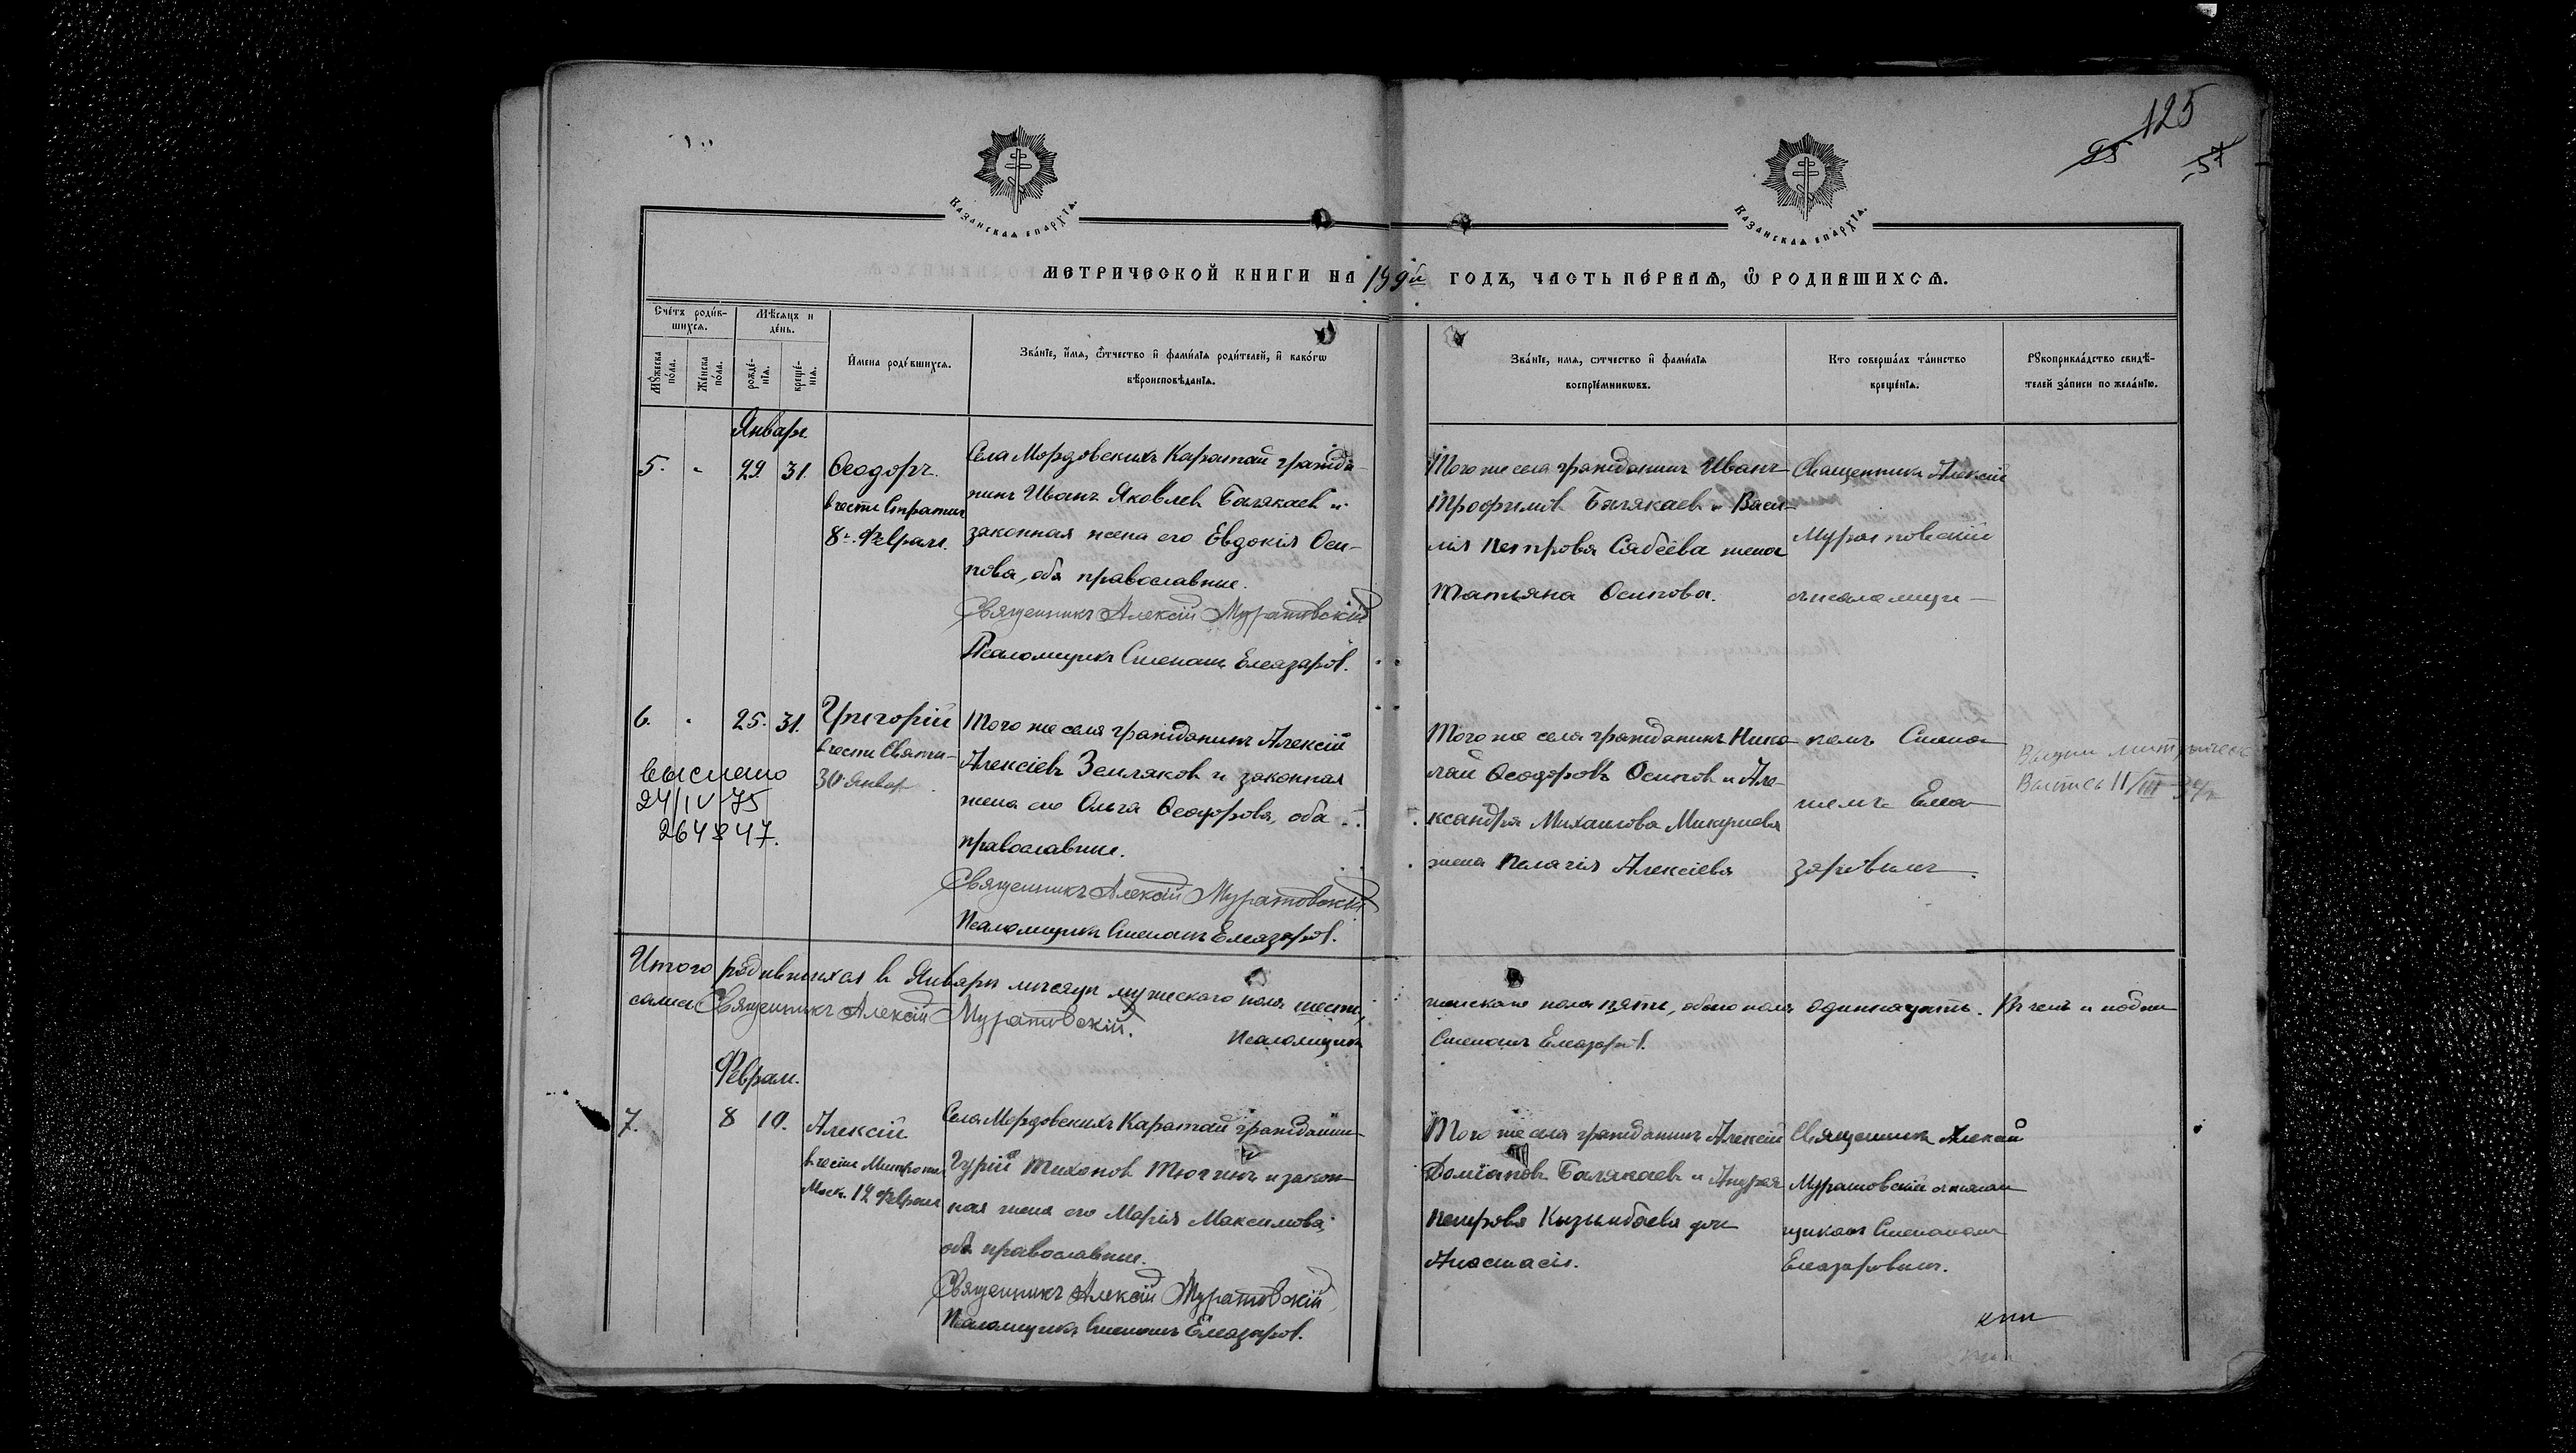 125
25
57
Казанская епархія.
Казанская епархія.
МЕТРИЧЕСКОЙ КНИГИ НА 19 й ГОДЪ, ЧАСТЬ ПЕРВАЯ, Ѡ РОДИВШИХСЯ.
Счётъ родив-
шихся.
Мѣсяцъ и
день.
Мужеска
пола.
Женска
пола.
рожде-
нія.
креще-
нія.
Имена родившихся.
Званіе, имя, ѻтчество и фамилія родителей, и какогѡ
вѣроисповѣданія.
Званіе, имя, ѻтчество и фамилія
воспріемникѡвъ.
Кто совершалъ таинство
крещенія.
Рукоприкладство свидѣ-
телей записи по желанію.
Январь
5. 29. 31.
Ѳеодоръ.
в честь Стратил
8го Февраля.
Села Мордовскихъ Каратай гражда-
нинъ Иванъ Яковлев Балякаев и
законная жена его Евдокія Оси-
пова, оба православные.
Священникъ Алексій Муратовскій
Псаломщикъ Степанъ Елеазаров.
Того же села гражданинъ Иванъ
Трофимов Балякаев и Васи-
лія Петрова Сябеева жена
Татьяна Осипова.
Священникъ Алексій
Муратовскій
съ псаломщи-
6. 25. 31.
Григорій
в честь Святи-
30 Январ
выслано
24/IV-75
264847.
Того же села гражданинъ Алексій
Алексіевъ Земляков и законная
жена его Ольга Ѳеодорова, оба
православные.
Священникъ Алексій Муратовскій
Псаломщикъ Степанъ Елеазаров.
Того же села гражданинъ Нико-
лай Ѳеодоровъ Осипов и Але-
ксандра Михаилова Микушева
жена Пелагія Алексіева
комъ Степа-
номъ Елеа-
заровымъ.
11/III
Итого родившихся в Январѣ мѣсяцѣ мужескаго пола шесть,
женскаго пола пять, обоего пола одиннадцать. Въ чемъ и подпи-
сались Священникъ Алексій Муратовскій.
Псаломщикъ
Степанъ Елеазаров.
Февраль.
7. 8 10.
Алексій
в честь Митропол
Моск. 12 Февраля
Села Мордовскихъ Каратай гражданин
Гурій Тихонов Тюгинъ и закон
ная жена его Марія Максимова,
оба православные.
Священникъ Алексій Муратовскій
Псаломщикъ Степанъ Елеазаров.
Того же села гражданинъ Алексій
Доміанов Балякаев и Андрея
Петрова Кызылбаева дочь
Анастасія.
Священникъ Алексій
Муратовскій с псалом
щиком Степаномъ
Елеазаровымъ.